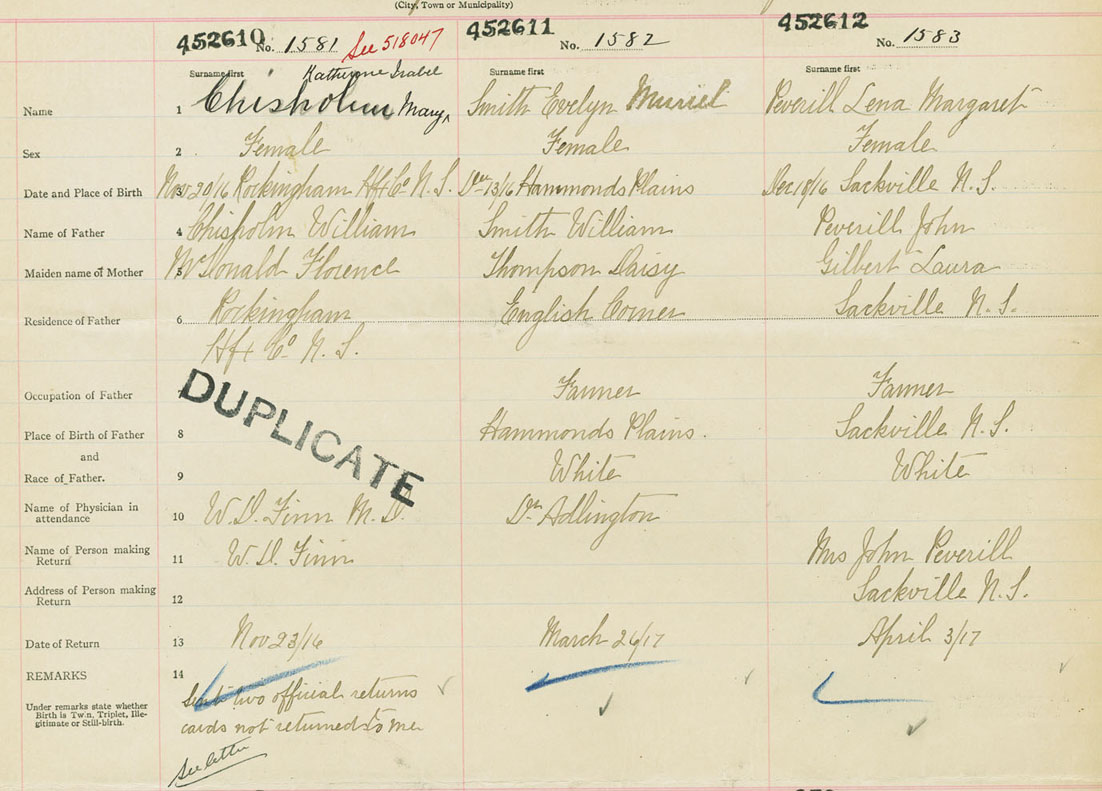 (City, Town or Municipality)
452610 No. 1581 See 518047 452611 No. 1582 452612 No. 1583
Surname first Katherine Isabel Surname first Surname first
Name 1 Chisholm Mary Smith Evelyn Muriel Peverill Lena Margaret
Sex 2 Female Female Female
Date and Place of Birth 3 Nov 20/16 Rockingham Hfx Co N.S. Dec 13/16 Hammonds Plains Dec 18/16 Sackville N.S.
Name of Father 4 Chisholm William Smith William Peverill John
Maiden name of Mother 5 McDonald Florence Thompson Daisy Gilbert Laura
Residence of Father 6 Rockingham English Corner Sackville N.S.
Hfx Co N.S.
Occupation of Father DUPLICATE Farmer Farmer
Place of Birth of Father 8 Hammonds Plains. Sackville N.S.
and
Race of Father. 9 White White
Name of Physician in
attendance 10 W.D. Finn M.D. Dr Adlington
Name of Person making
Return 11 W.D. Finn Mrs John Peverill
Address of Person making
Return 12 Sackville N.S.
Date of Return 13 Nov 23/16 March 26/17 April 3/17
REMARKS 14
Under remarks state whether
Birth is Twin, Triplet, Ille-
gitimate or Still-birth.
two official returns
cards not returned to me
See letter